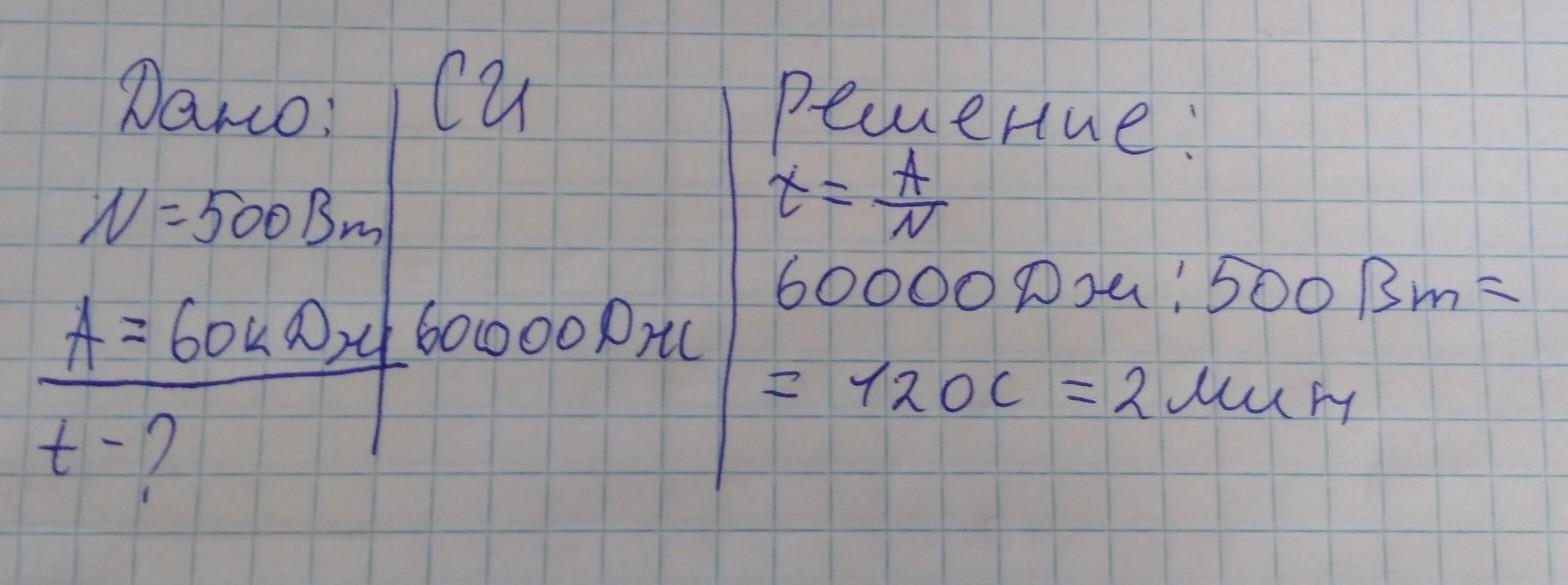 Дано:
N=500Вт
A=60кДж
t-?
СИ
60000Дж
Решение:
t=A/N
60000Дж:500Вт=
=120с=2мин